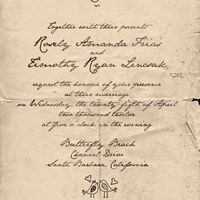 Together with their parents
Rosely Amanda Frias
and
Timothy Ryan Lencsak
request the honour of your presence
at their marriage
on Wednesday, the twenty fifth of April
two thousand twelve
at five o'clock in the evening
Butterfly Beach
Channel Drive
Santa Barbara, California